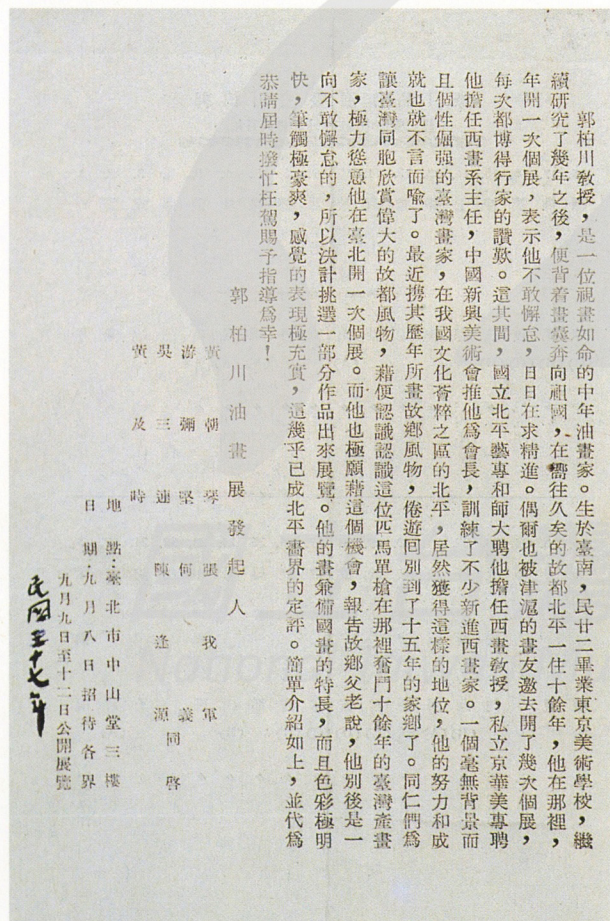 郭柏川教授,是一位視畫如命的中年油畫家。生於臺南,民廿二畢業東京美術學校,繼
續研究了幾年之後,便背着畫囊奔向祖國,在嚮往久矣的故都北平一住十餘年,他在那裡,
年開一次個展,表示他不敢懈怠,日日在求精進。偶爾也被津滬的畫友邀去開了幾次個展,
每次都博得行家的讚歎。這其間,國立北平藝專和師大聘他擔任西畫敎授,私立京華美專聘
他擔任西畫系主任,中國新興美術會推他爲會長,訓練了不少新進西畫家。一個毫無背景而
且個性倔强的臺灣畫家,在我國文化薈粹之區的北平,居然獲得這樣的地位,他的努力和成
就也就不言而喩了。最近携其歷年所畫故鄉風物,倦遊回別到了十五年的家鄉了。同仁們爲
讓臺灣同胞欣賞偉大的故都風物,藉便認識認識這位匹馬單槍在那裡奮鬥十餘年的臺灣產畫
家,極力慫恿他在臺北開一次個展。而他也極願藉這個機會,報告故鄉父老說,他別後是一
向不敢懈怠的,所以決計挑選一部分作品出來展覽。他的畫兼備國畫的特長,而且色彩極明
快,筆觸極豪爽,感覺的表現極充實,這幾乎已成北平畫界的定評。簡單介紹如上,並代爲
恭請屆時撥忙枉駕賜予指導爲幸!
郭柏川油畫展發起人
黃朝琴 張我軍
游彌堅 何義
吳三連 陳逢源 同啓
黃及時
地點:臺北市中山堂三樓
日期:九月八日招待各界
九月九日至十二日公開展覽
民國三十七年